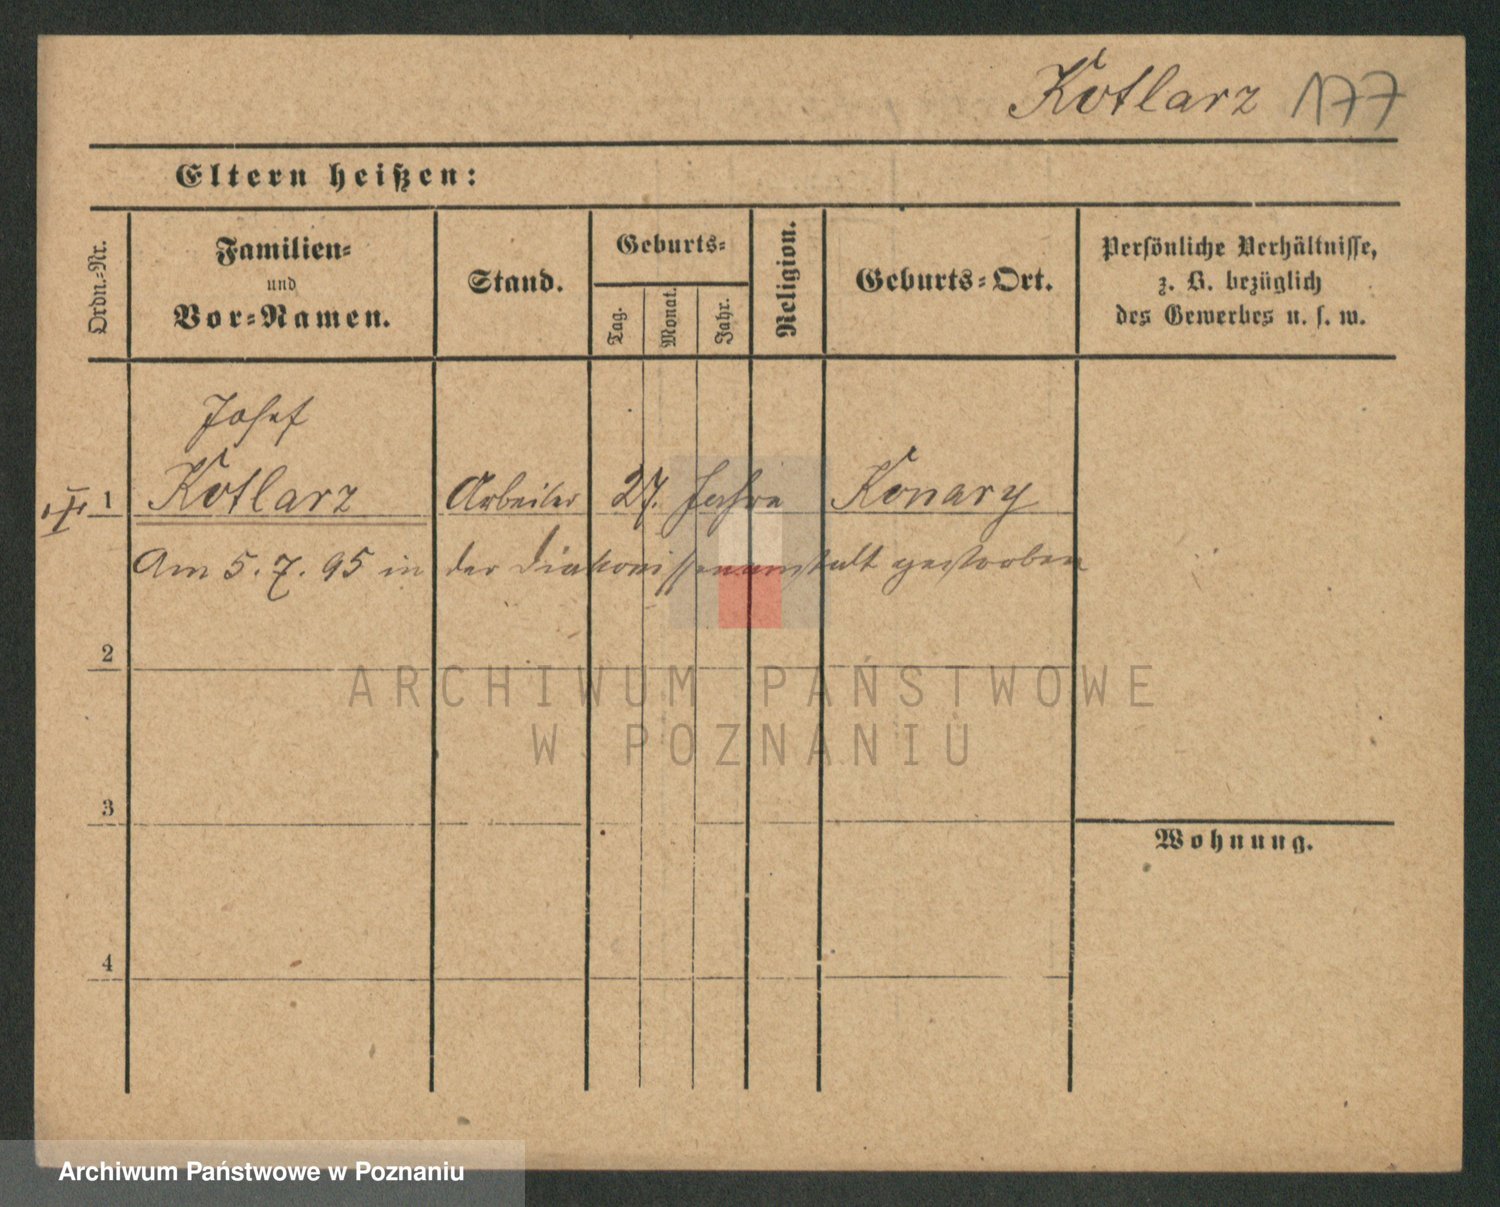 Kotlarz 177
Eltern heißen:
Ordn.-Nr.
Familien- und Vor-Namen.
Stand.
Geburts-
Tag.
Monat.
Jahr.
Religion.
Geburts-Ort.
Persönliche Verhältnisse,
z. B. bezüglich
des Gewerbes u. s. w.
Josef
1 Kotlarz Arbeiter 27. Jahre Konary
Am 5.7.95 in der Diakonissenanstalt gestorben
2
ARCHIWUM PAŃSTWOWE
W POZNANIU
3
Wohnung.
4
Archiwum Państwowe w Poznaniu